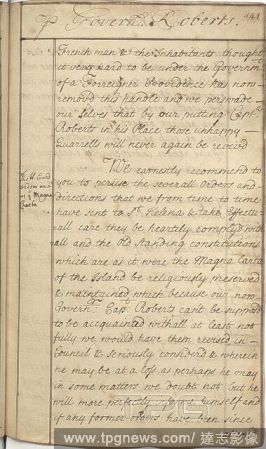 Govern.r Roberts.
141
French man & the Inhabitants thought
it very hard to be under the Governm.t
of a Forreigner Providence has now
removed this handle and we perswade
our selves that by our putting Cap.t
Roberts in his Place those unhappy
Quarrells will never again be revived
We earnestly recommend to
you to peruse the severall Orders and
Directions that we from time to time
have sent to S.t Helena & take Effectu
all care they be heartily complyd with
all and the Old standing constitutions
which are as it were the Magna Carta
of the Island be religiously preserved
& maintained which because our now
Govern.r Cap.t Roberts cant be supposd
to be acquainted withall at least not
fully we would have them revised in
Council & seriously considerd & wherein
he may be at a loss as perhaps he may
in some matters we doubt not but he
will more perfectly himself and
if any former orders have been since
as
Magna
Carta
www.tpgnews.com / 達志影像